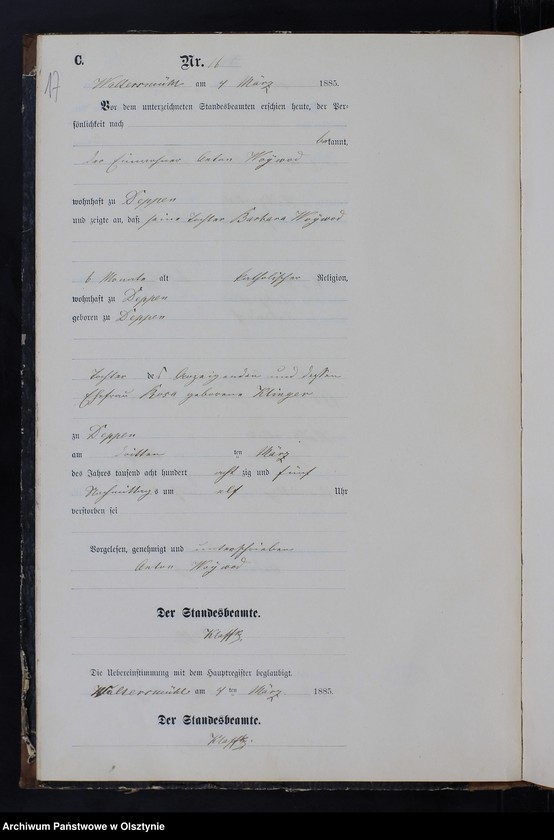 C.
Nr. 16
17
Waltersmühl am 4 März 1885.
Vor dem unterzeichneten Standesbeamten erschien heute, der Per-
sönlichkeit nach
bekannt,
der Einwohner Anton Woywod
wohnhaft zu Deppen
und zeigte an, daß seine Tochter Barbara Woywod
6 Monate alt katholischer Religion,
wohnhaft zu Deppen
geboren zu Deppen
Tochter des Anzeigenden und dessen
Ehefrau Rosa geborene Klinger
zu Deppen
am dritten ten März
des Jahres tausend acht hundert achtzig und fünf
Nachmittags um elf Uhr
verstorben sei
Vorgelesen, genehmigt und unterschrieben
Anton Woywod
Der Standesbeamte.
Die Uebereinstimmung mit dem Hauptregister beglaubigt.
Waltersmühl am 4 ten März 1885.
Der Standesbeamte.
Archiwum Państwowe w Olsztynie